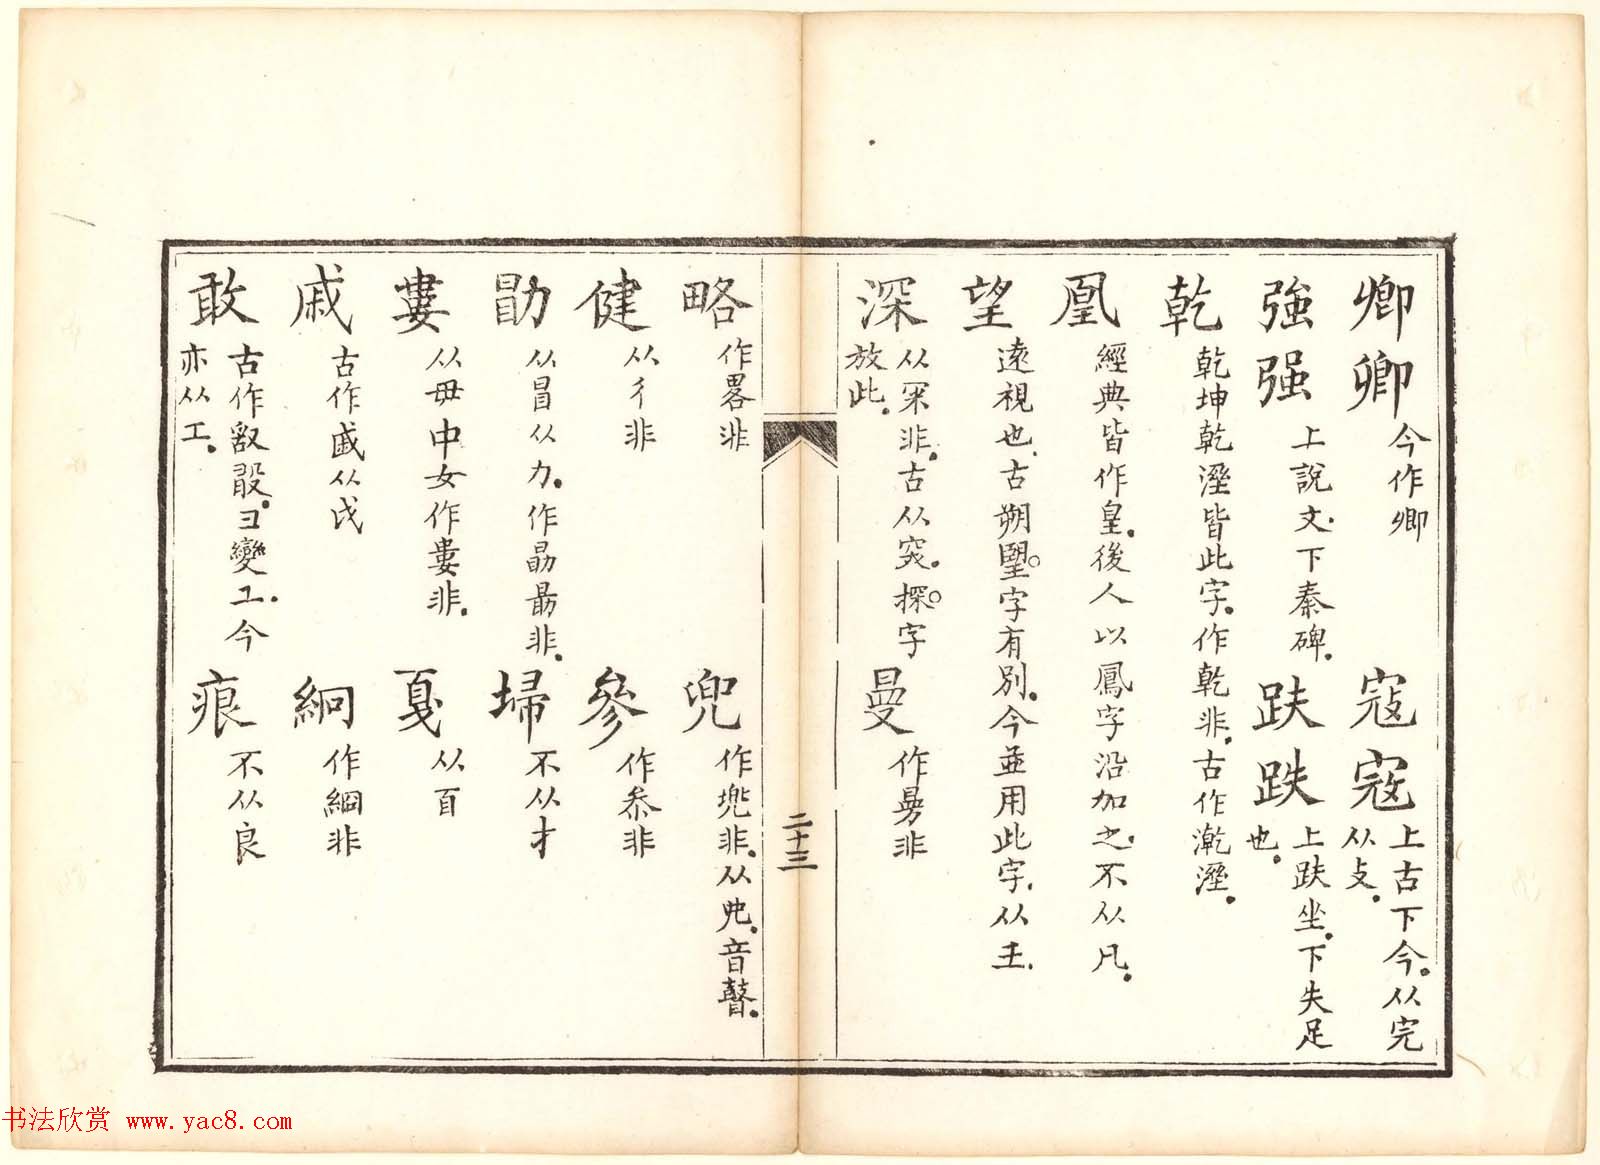 卿卿 今作卿
寇寇 上古下今。从完
从攴。
強强 上說文。下秦碑。
趺跌 上趺坐。下失足
也。
乾 乾坤乾溼皆此字。作乹非。古作漧溼。
凰 經典皆作皇。後人以鳳字沿加之。不从凡。
望 遠視也。古朔朢字有別。今並用此字。从王。
深 从罙非。古从突。探字
放此。
曼 作曼非
二十三
略 作畧非
兜 作兠非。从皃。音瞽。
健 从彳非
參 作叅非
勖 从冒从力。作勗最非。
埽 不从扌
婁 从毋中女作婁非。
戛 从百
戚 古作戚从戉
絅 作綗非
敢 古作㪉𣪏。彐變工。今
亦从工。
痕 不从良
书法欣赏 www.yac8.com